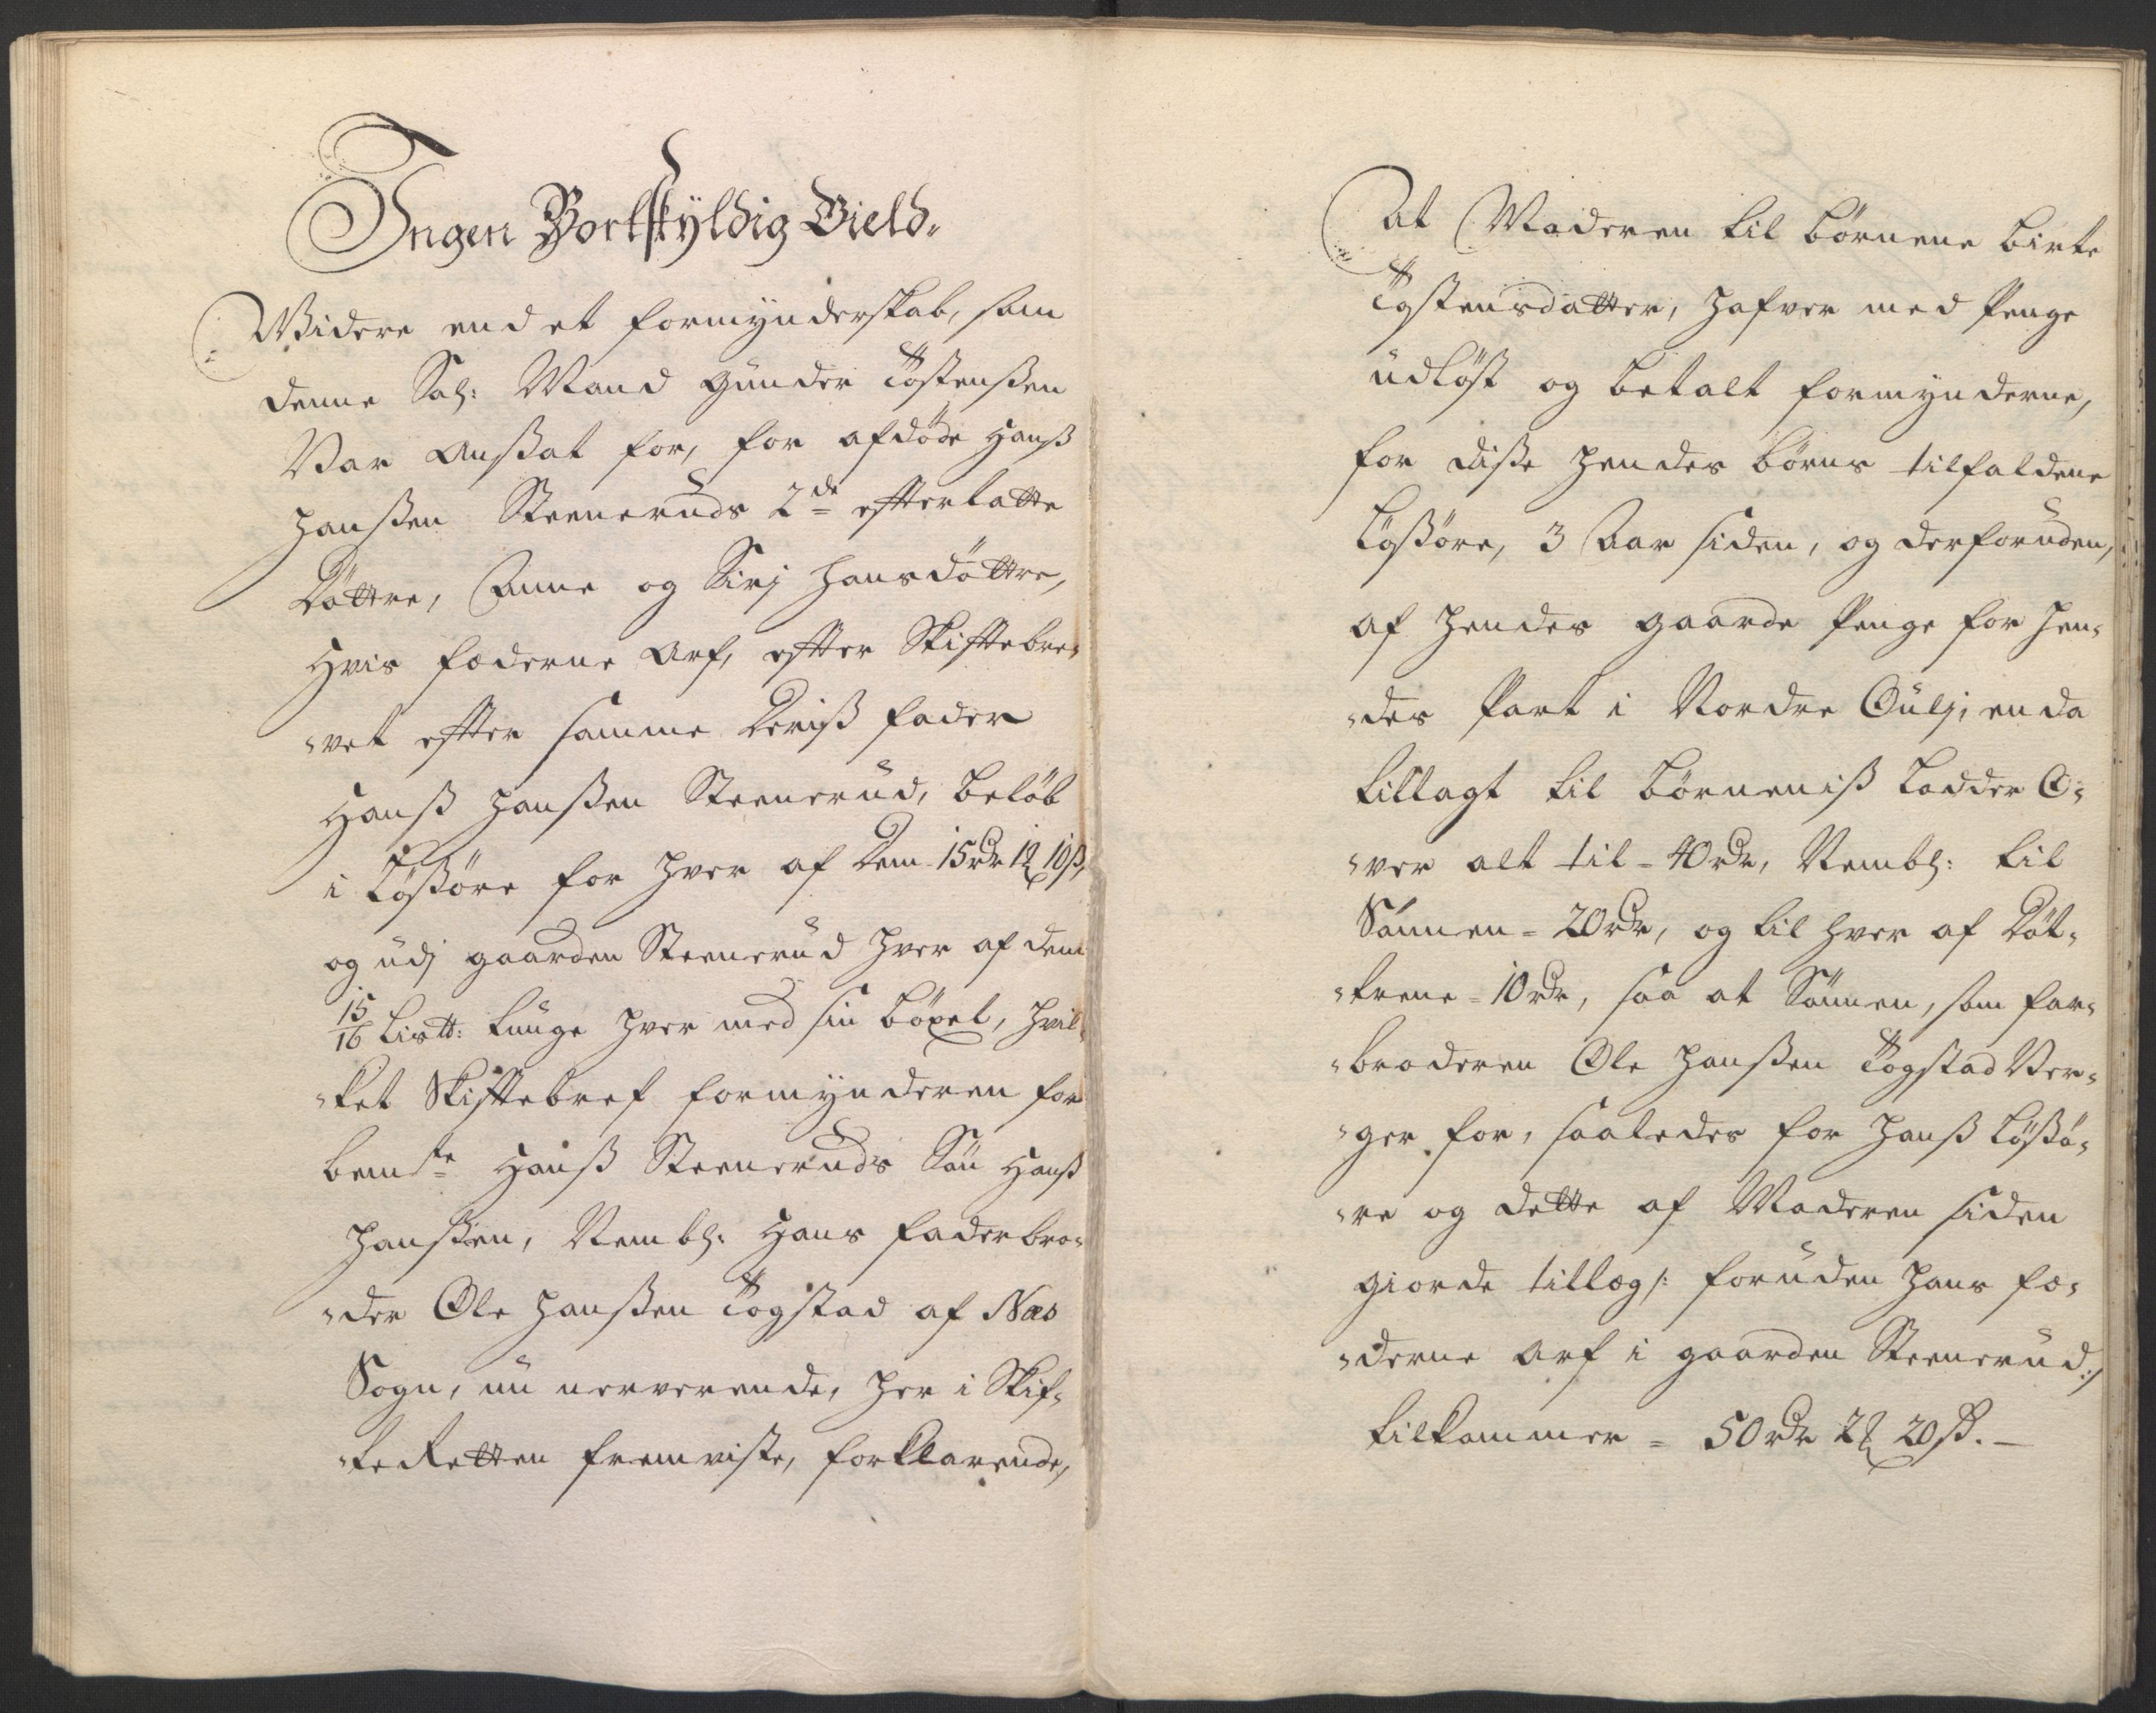 Ingen Bortskyldig Gield.
Widere end et formynderskab, som
denne Sal: Mand Gunder Tostenßen
Var ansat for, for afdöde Hanß
Hanßen Steneruds 2de efterlatte
Döttre, Anne og Siri Hansdöttre,
Hvis fæderne Arf, efter Skiftebre-
-vet efter samme deriß fader
Hanß Hanßen Stenerud, belöb
i Lößöre for hver af Dem 15 rdr 1 ort 10 ß,
og udj gaarden Stenerud hver af dem
15/16 Lis℔: tunge hver med sin böxel, hvil-
-ket Skiftebref formynderen for
bemte Hanß Steneruds Sön Hanß
Hanßen, Nembl: Hans faderbro-
-der Ole Hanßen Togstad af Næs
Sogn, nu nerverende, her i Skif-
-te Retten fremviste, forklarende,
At Moderen til börnene birte
Tostensdatter, hafver med Penge
udlöst og betalt formynderne,
for diße hendes börns tilfaldene
Lößöre, 3 Aar siden, og derforuden,
af hendes gaarde Penge for hen-
-des Part i Nordre Gulj, enda
tillagt til börneniß Lodder O-
-ver alt til = 40 rdr, Nembl: til
Sönnen = 20 rdr, og til hver af Döt-
-trene = 10 rdr, saa at Sönnen, som far-
-broderen Ole Hanßen Togstad Ver-
-ger for, saaledes for hanß Lößö-
-re og dette af Moderen siden
giorde tillæg /: foruden hans fæ-
-derne Arf i gaarden Stenerud :/
tilkommer = 50 rdr 2 ort 20 ß. —